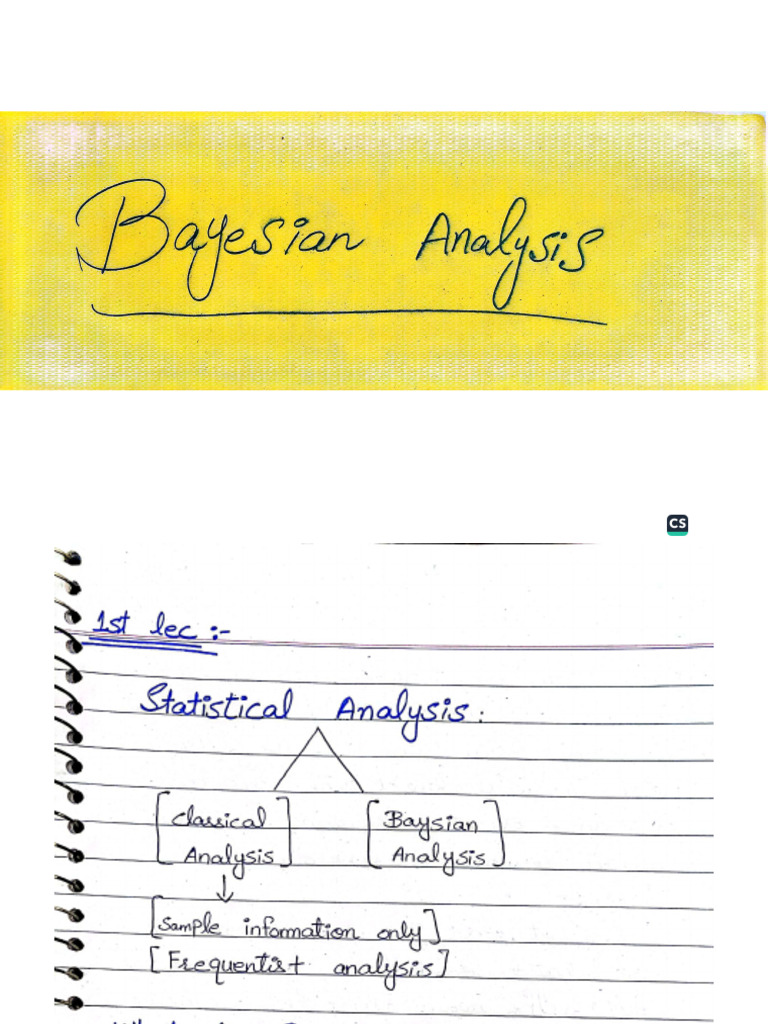 Bayesian Analysis
CS
1st lec :-
Statistical Analysis :
[Classical Analysis]
[Baysian Analysis]
[Sample information only]
[Frequentist analysis]